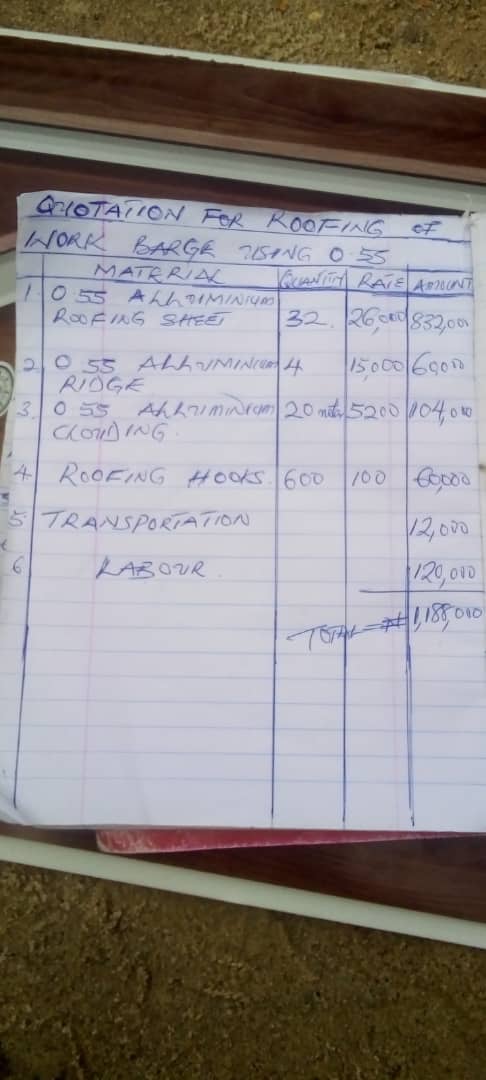 QUOTATION FOR ROOFING OF
WORK BARGE USING 0.55
MATERIAL QUANTITY RATE AMOUNT
1. 0.55 ALLUMINIUM ROOFING SHEET 32. 26,000 832,000
2. 0.55 ALLUMINIUM RIDGE 4 15,000 60,000
3. 0.55 ALLUMINIUM CLODING. 20 meter 5200 104,000
4 ROOFING HOOKS. 600 100 60,000
5. TRANSPORTATION 12,000
6 LABOUR. 120,000
TOTAL = ₦ 1,188,000